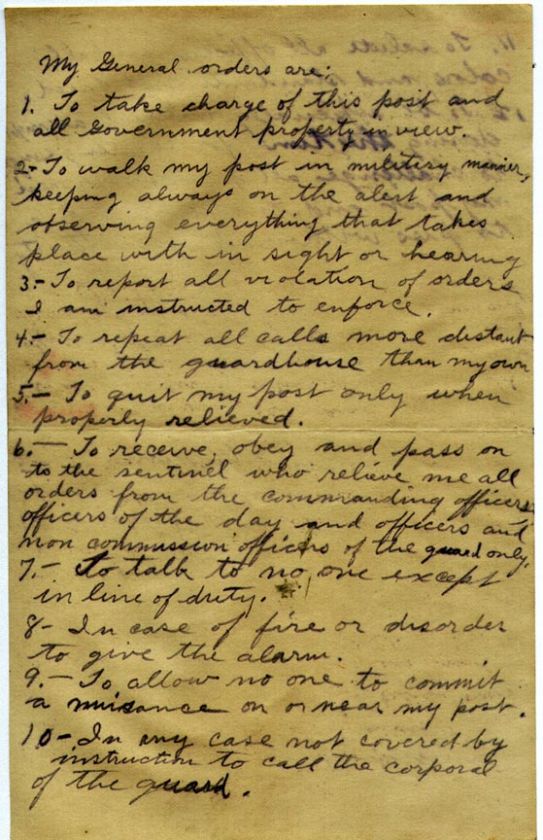 My General orders are:
1. To take charge of this post and
all Government property in view.
2- To walk my post in military manner,
keeping always on the alert and
observing everything that takes
place with in sight or hearing
3- To report all violation of orders
I am instructed to enforce.
4.- To repeat all calls more distant
from the guardhouse than my own
5.- To quit my post only when
properly relieved.
6.- To receive, obey and pass on
to the sentinel who relieve me all
orders from the commanding officers
officers of the day and officers and
non commission officers of the guard only.
7.- to talk to no one except
in line of duty.
8- In case of fire or disorder
to give the alarm.
9.- To allow no one to commit
a nuisance on or near my post.
10-. In any case not covered by
instruction to call the corporal
of the guard.